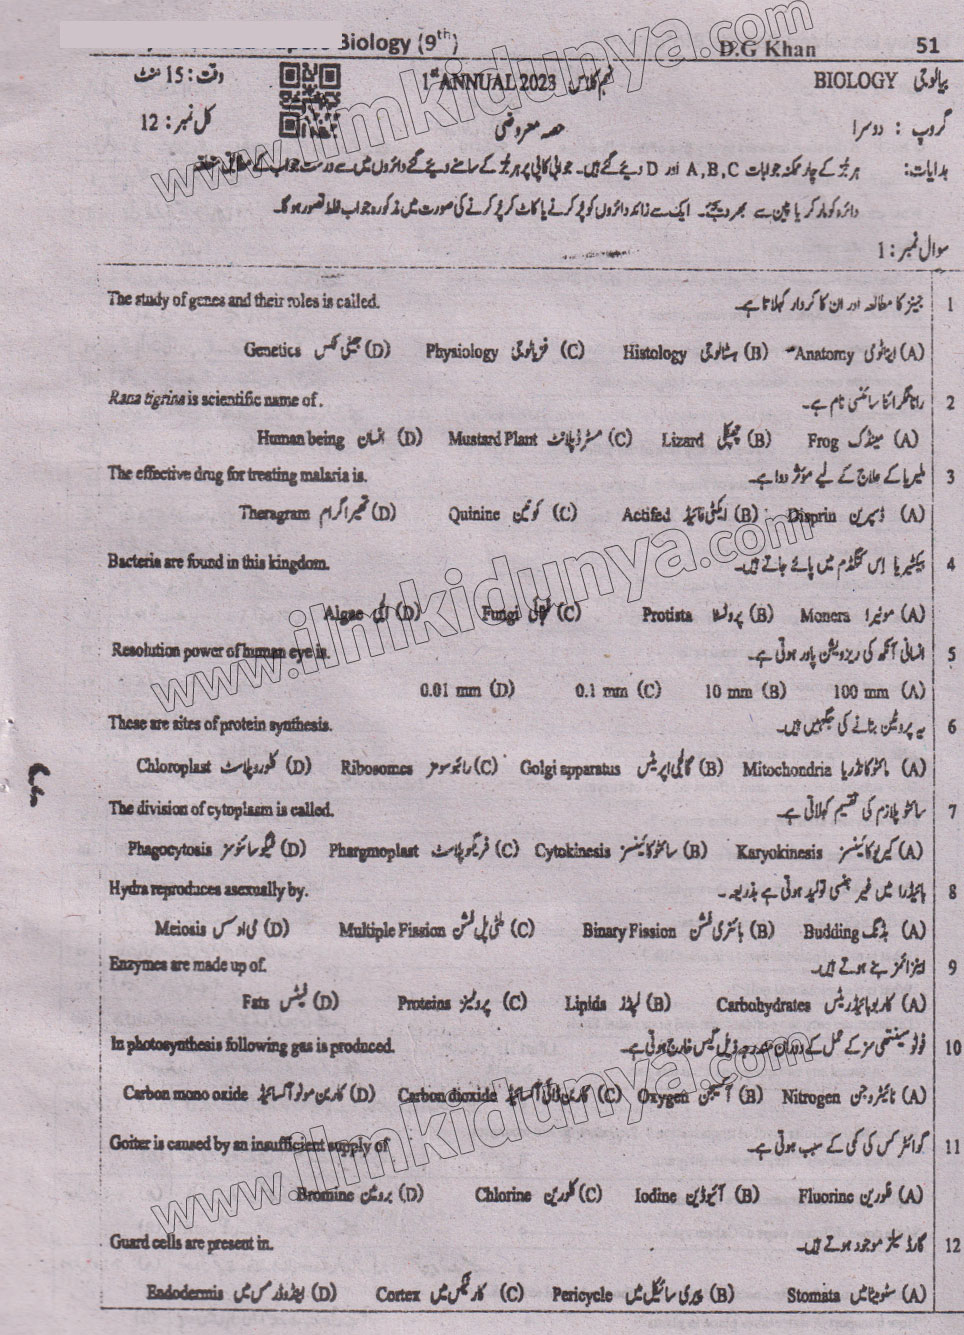 Biology (9th) D.G Khan 51
بیالوجی BIOLOGY نہم کلاس 1st ANNUAL 2023 وقت: 15 منٹ
گروپ : دوسرا حصہ معروضی کل نمبر: 12
ہدایات: ہر جُز کے چار ممکنہ جوابات A,B,C اور D دیئے گئے ہیں۔ جوابی کاپی پر ہر جُز کے سامنے دیئے گئے دائروں میں سے درست جواب کے مطابق متعلقہ
دائرہ کو مارکر یا پین سے بھر دیجئے۔ ایک سے زائد دائروں کو پُر کرنے یا کاٹ کر پُر کرنے کی صورت میں مذکورہ جواب غلط تصور ہو گا۔
سوال نمبر: 1
1 جینز کا مطالعہ اور ان کا کردار کہلاتا ہے۔ The study of genes and their roles is called.
(A) اناٹومی Anatomy (B) ہسٹالوجی Histology (C) فزیالوجی Physiology (D) جینی ٹکس Genetics
2 رانا ٹگرائنا سائنسی نام ہے۔ Rana tigrina is scientific name of.
(A) مینڈک Frog (B) چھپکلی Lizard (C) مسٹرڈ پلانٹ Mustard Plant (D) انسان Human being
3 ملیریا کے علاج کے لیے مؤثر دوا ہے۔ The effective drug for treating malaria is.
(A) ڈسپرین Disprin (B) ایکٹی فائیڈ Actifed (C) کونین Quinine (D) تھیراگرام Theragram
4 بیکٹیریا اِس کنگڈم میں پائے جاتے ہیں۔ Bacteria are found in this kingdom.
(A) مونیرا Monera (B) پروٹسٹا Protista (C) فنجائی Fungi (D) الجی Algae
5 انسانی آنکھ کی ریزولیشن پاور ہوتی ہے۔ Resolution power of human eye is.
(A) 100 mm (B) 10 mm (C) 0.1 mm (D) 0.01 mm
6 یہ پروٹین بنانے کی جگہیں ہیں۔ These are sites of protein synthesis.
(A) مائٹوکانڈریا Mitochondria (B) گالجی اپریٹس Golgi apparatus (C) رائبوسومز Ribosomes (D) کلوروپلاسٹ Chloroplast
7 سائٹوپلازم کی تقسیم کہلاتی ہے۔ The division of cytoplasm is called.
(A) کیریوکائنیسز Karyokinesis (B) سائٹوکائنیسز Cytokinesis (C) فریگموپلاسٹ Phargmoplast (D) فیگوسائٹوسز Phagocytosis
8 ہائیڈرا میں غیر جنسی تولید ہوتی ہے بذریعہ۔ Hydra reproduces asexually by.
(A) بڈنگ Budding (B) بائنری فشن Binary Fission (C) ملٹی پل فشن Multiple Fission (D) می اوسس Meiosis
9 اینزائمز بنے ہوتے ہیں۔ Enzymes are made up of.
(A) کاربوہائیڈریٹس Carbohydrates (B) لپڈز Lipids (C) پروٹینز Proteins (D) فیٹس Fats
10 فوٹو سینتھی سز کے عمل کے دوران مندرجہ ذیل گیس خارج ہوتی ہے۔ In photosynthesis following gas is produced.
(A) نائیٹروجن Nitrogen (B) آکسیجن Oxygen (C) کاربن ڈائی آکسائیڈ Carbon dioxide (D) کاربن مونو آکسائیڈ Carbon mono oxide
11 گوائٹر کس کی کمی کے سبب ہوتی ہے۔ Goiter is caused by an insufficient supply of
(A) فلورین Fluorine (B) آئیوڈین Iodine (C) کلورین Chlorine (D) برومین Bromine
12 گارڈ سیلز موجود ہوتے ہیں۔ Guard cells are present in.
(A) سٹومیٹا میں Stomata (B) پیری سائیکل میں Pericycle (C) کارٹیکس میں Cortex (D) اینڈوڈرمس میں Endodermis
www.ilmkidunya.com
www.ilmkidunya.com
www.ilmkidunya.com